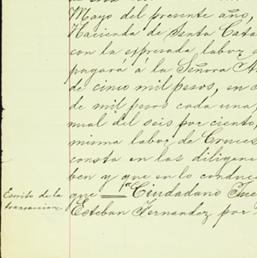 Mayo del presente año,
Hacienda de Santa Cata
con la expresada labor
pagará á la Señora
de cinco mil pesos, en
de mil pesos cada una,
mual del seis por ciento,
misma labor de Cruces
consta en las diligen
ben y que en lo conduc
Escrito de la
transaccion
que Ciudadano Jue
Esteban Fernandez por